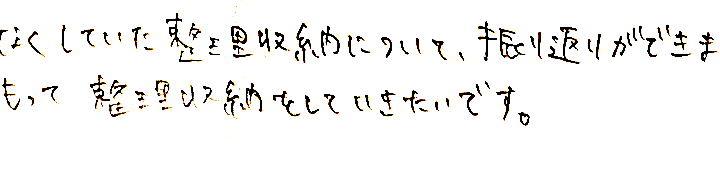 なくしていた整理収納について、振り返りができま
もって整理収納をしていきたいです。